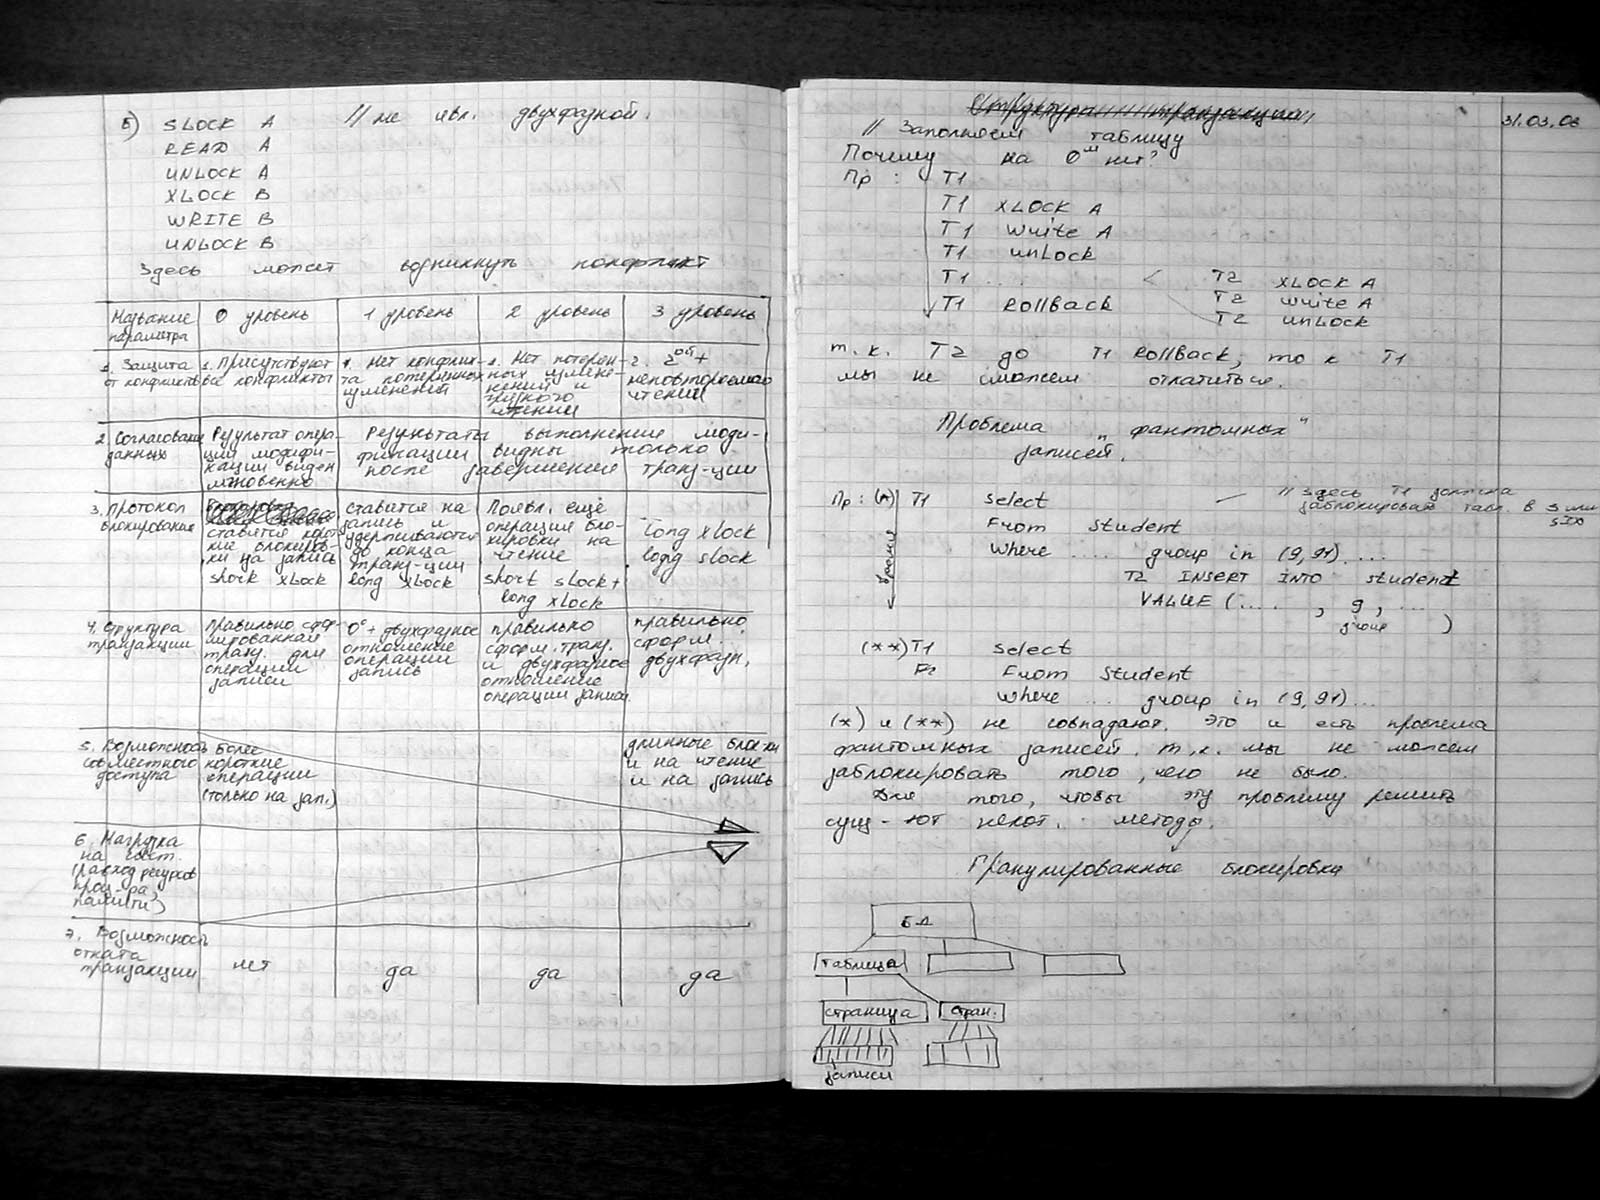 Б) SLOCK A // не явл. двухфазной.
READ A
UNLOCK A
XLOCK B
WRITE B
UNLOCK B
Здесь может возникнуть конфликт
Название параметра
0 уровень
1 уровень
2 уровень
3 уровень
1. Защита
от конфликтов
1. Присутствуют
все конфликты
1. Нет конфлик-
та потерянных
изменений
1. Нет потерян-
ных измене-
нений и
грязного
чтения
2. 2ой +
неповторяемого
чтения
2. Согласование
данных
Результат опера-
ции модифи-
кации виден
мгновенно
Результаты выполнения моди-
фикации видны только
после завершения транз-ции
3. Протокол
блокирования
ставятся корот-
кие блокиров-
ки на запись
short xLock
ставится на
запись и
удерживаются
до конца
транз-ции
long xLock
Появл. ещё
операция бло-
кировки на
чтение
short sLock +
long xLock
long xlock
long slock
4. Структура
транзакции
правильно сфор-
мированная
транз. для
операции
записи
0° + двухфазное
отношение
операции
запись
правильно
сформ. транз.
и двухфазное
отношение
операции записи
правильно
сформ.
двухфазн.
5. Возможность
совместного
доступа
более
короткие
операции
(только на зап.)
длинные блок-ки
и на чтение
и на запись
6. Нагрузка
на сист.
(расход ресурсов
проц-ра,
памяти)
7. Возможность
отката
транзакции
нет
да
да
да
Структура транзакции
31.03.08
// Заполняем таблицу
Почему на 0м нет?
Пр : T1
T1 XLOCK A
T1 write A
T1 unLock
T1 .... T2 XLOCK A
T2 write A
T1 Rollback
T2 unLock
т.к. T2 до T1 Rollback, то к T1
мы не сможем откатиться.
Проблема "фантомных"
записей.
Пр : (*) T1 Select
// Здесь T1 должна
заблокировать табл. в S или
SIX
From Student
Where .... group in (9, 91) ....
время
T2 INSERT INTO student
VALUE (.... , 9, ...
group )
(**) T1 Select
From Student
Where ... group in (9, 91)...
(*) и (**) не совпадают. Это и есть проблема
фантомных записей. т.к. мы не можем
заблокировать того, чего не было.
Для того, чтобы эту проблему решить
сущ-ют некот. методы.
Гранулированные блокировки
БД
таблица
страница
стран.
записи